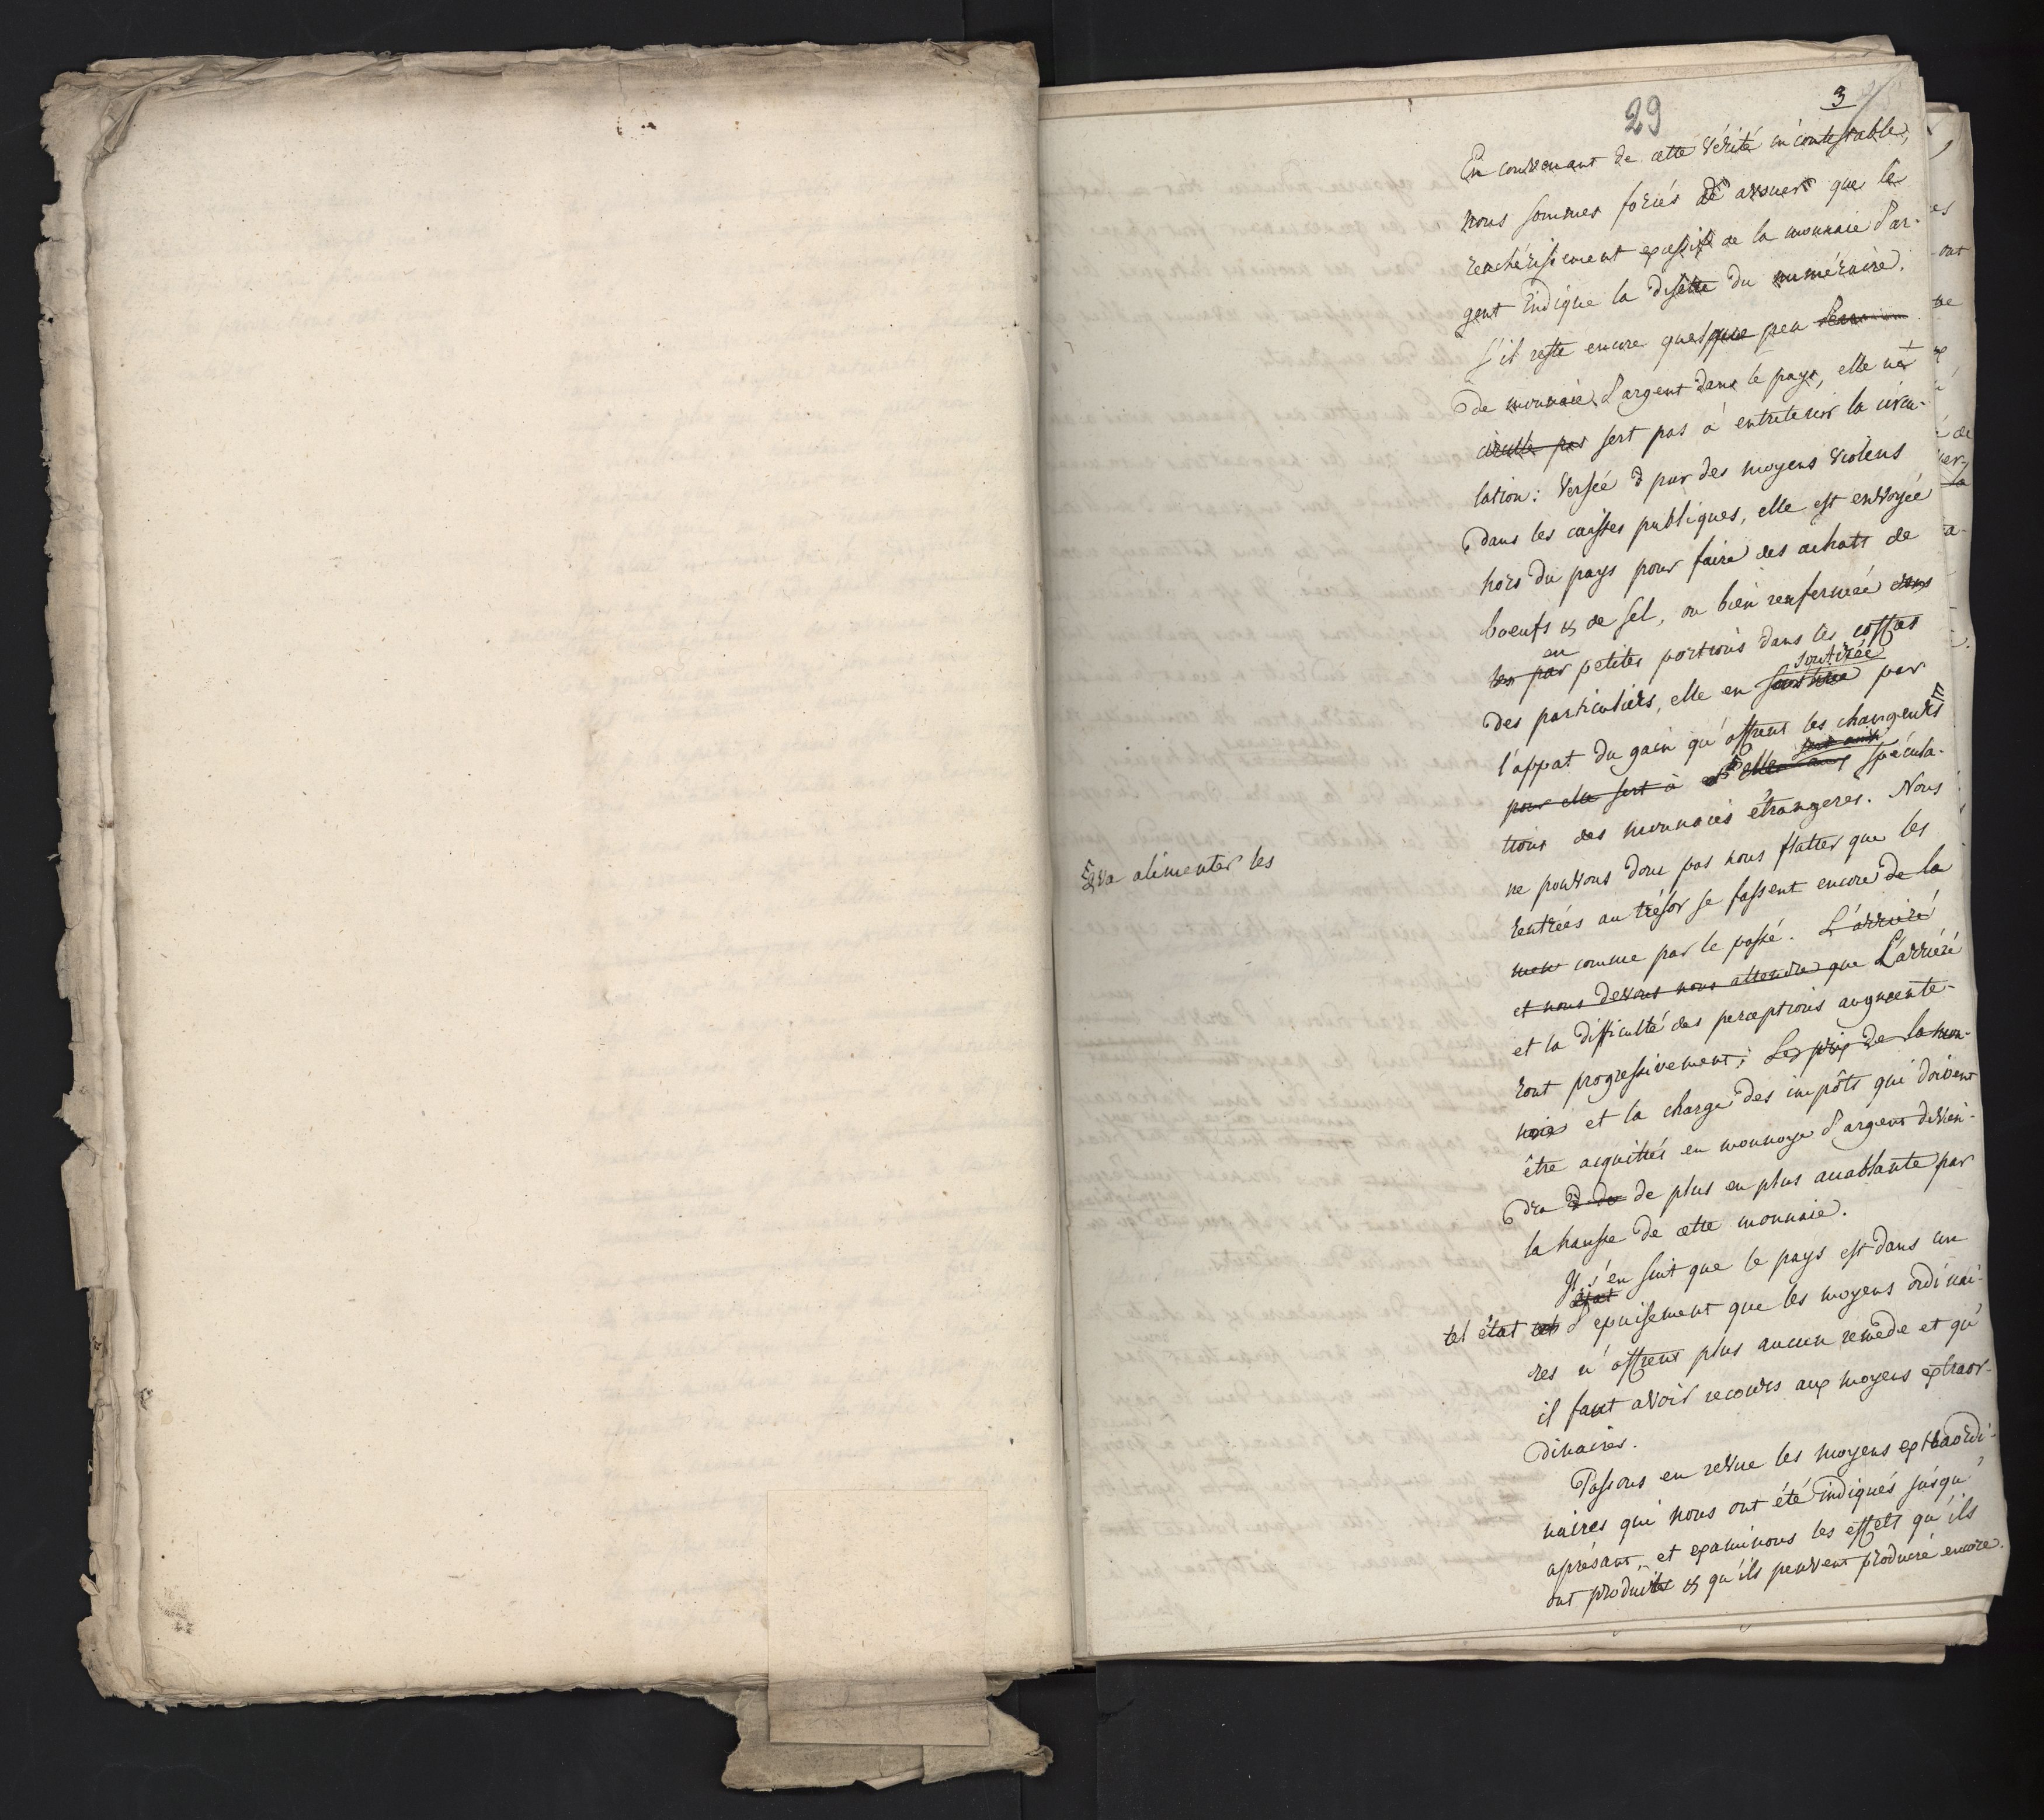 29
3
En convenant de cette vérité incontestable,
nous sommes forcés d'avouer que le
renchérissement excessif de la monnaie d'ar-
gent indique la disette du numéraire.
S'il reste encore quelque peu
de monnaie d'argent dans le pays, elle ne
circule pas sert pas à entretenir la circu-
lation: versée par des moyens violens
dans les caisses publiques, elle est envoyée
hors du pays pour faire des achats de
boeufs & de sel, ou bien renfermée dans
les par en petites portions dans les coffres
des particuliers, elle en soutirée par
l'appat du gain qu'offrent les changeurs
pour elle sert à spécula-
va alimenter les
tions des monnaies étrangeres. Nous
ne pouvons donc pas nous flatter que les
rentrées au trésor se fassent encore de la
même comme par le passé. L'arriéré
et nous devons nous attendre que L'arriéré
et la difficulté des perceptions augmente-
ront progressivement; Le prix de la mon-
noie et la charge des impôts qui doivent
être acquittés en monnoye d'argent devien-
dra de plus en plus accablante par
la hausse de cette monnaie.
Il s'en suit que le pays est dans un
tel état d'epuisement que les moyens ordinai-
res n'offrent plus aucun remède et qu'
il faut avoir recours aux moyens extraor-
dinaires.
Passons en revue les moyens extraordi-
naires qui nous ont été indiqués jusqu'
aprésant, et examinons les effets qu'ils
ont produits & qu'ils peuvent produire encore.